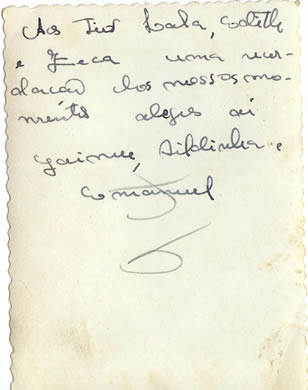 Aos Tios Lala, Edith
e Zeca uma recor-
dação dos nossos mo-
mentos alegres ai
Jaime, Sildinha e
Emanuel